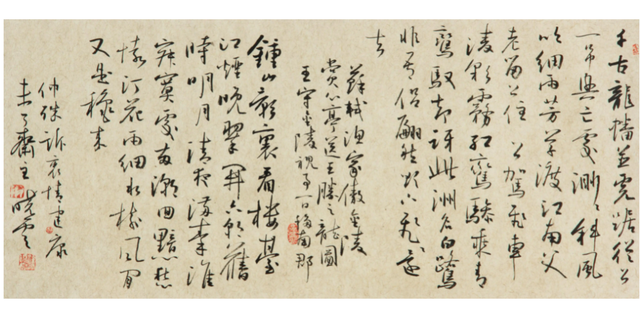 千古龍蟠並虎踞從公
一弔興亡處渺渺斜風
吹細雨芳草渡江南父
老留公住 公駕飛車
凌彩霧紅鸞驂乘青
鸞馭却訝此洲名白鷺
非吾侶翩然欲下飛還
去
蘇軾漁家傲金陵
賞心亭送王勝之龍圖
王守金陵視事一日移南郡
鍾山影裏看樓臺
江煙晚翠開六朝舊
時明月清夜滿秦淮
寂寞處兩潮回黯愁
懷汀花雨細水樹風閒
又是秋來
仲殊訴衷情建康
未了齋主